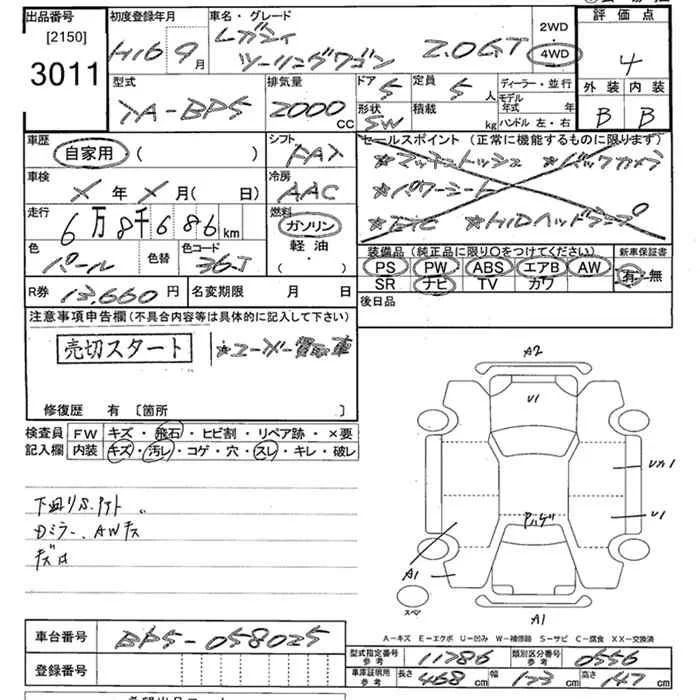 出品番号 初度登録年月 車名・グレード 2WD 評価点
[2150] H16 9月 レガシィ 4WD 4
3011 ツーリングワゴン 2.0GT
型式 排気量 ドア 5 定員 5人 ディーラー・並行 外装 内装
TA-BP5 2000CC 形状 SW 積載 kg モデル年式 年 B B
ハンドル 左・右
車歴 シフト セールスポイント (正常に機能するものに限ります)
自家用 ( ) FAT ☆マッキントッシュ ☆バックカメラ
車検 冷房 ☆パワーシート
X年X月( 日) AAC ☆ETC ☆HIDヘッドランプ
走行 燃料
6万8千686km ガソリン 装備品 (純正品に限り〇をつけてください) 新車保証書
色 色替 色コード 軽油 PS PW ABS エアB AW 有・無
パール 36J ( ・ ) SR ナビ TV カワ
R券 13,660円 名変期限 月 日 後日品
注意事項申告欄 (不具合内容等は具体的に記入して下さい)
売切スタート ☆ユーザー買取車
修復歴 有 [箇所 ]
検査員 FW キズ・飛石・ヒビ割・リペア跡・×要
記入欄 内装 キズ・汚レ・コゲ・穴・スレ・キレ・破レ
A2
U1
Uカ1
下回りS.
Dミラー、AWキズ
U1
A1
スペア A1
A-キズ E-エクボ U-凹み W-補修跡 S-サビ C-腐食 XX-交換済
車台番号 BP5-058025
型式指定番号 参考 11786 類別区分番号 参考 0556
登録番号
車庫証明用 参考 長さ 468cm 幅 173cm 高さ 147cm